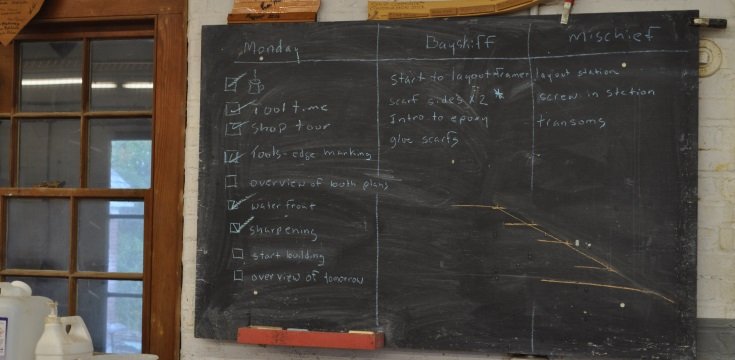 Monday
Tool time
Shop tour
Tools-edge marking
overview of both plans
waterfront
sharpening
start building
overview of tomorrow
Bayskiff
Start to layout framer
scarf sides x2 *
Intro to epoxy
glue scarfs
Mischief
layout station
screw in station
transoms